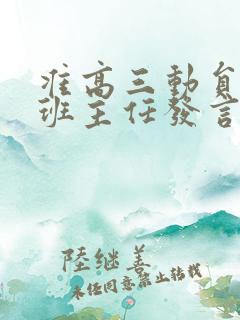 准高三動員
班主任發言
陸继善
未经同意禁止转载